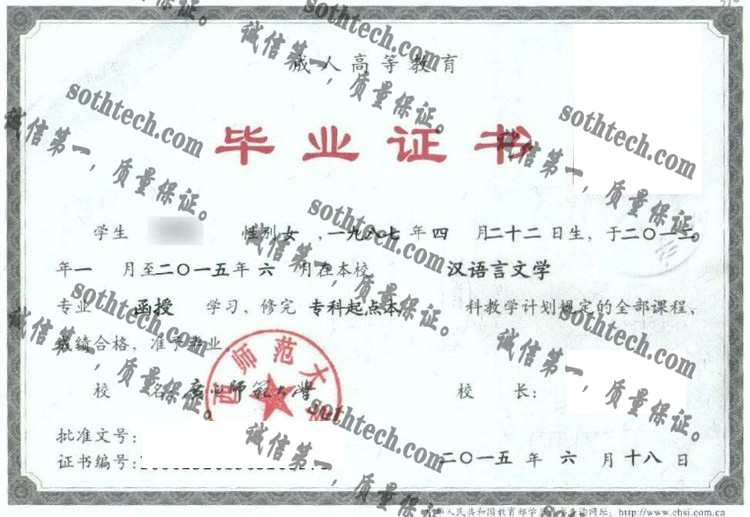 成人高等教育
毕业证书
学生 性别女，一九八七年四月二十二日生，于二〇一三
年一月至二〇一五年六月在本校 汉语言文学
专业 函授 学习，修完 专科起点本 科教学计划规定的全部课程，
成绩合格，准予毕业
校 名 广西师范大学
校 长：
西师范大学
批准文号：
证书编号：
二〇一五年六月十八日
中华人民共和国教育部学历证书查询网址：http://www.chsi.com.cn
sothtech.com
诚信第一，质量保证。
sothtech.com
诚信第一，质量保证。
sothtech.com
诚信第一，质量保证。
sothtech.com
诚信第一，质量保证。
sothtech.com
诚信第一，质量保证。
sothtech.com
诚信第一，质量保证。
sothtech.com
诚信第一，质量保证。
sothtech.com
诚信第一，质量保证。